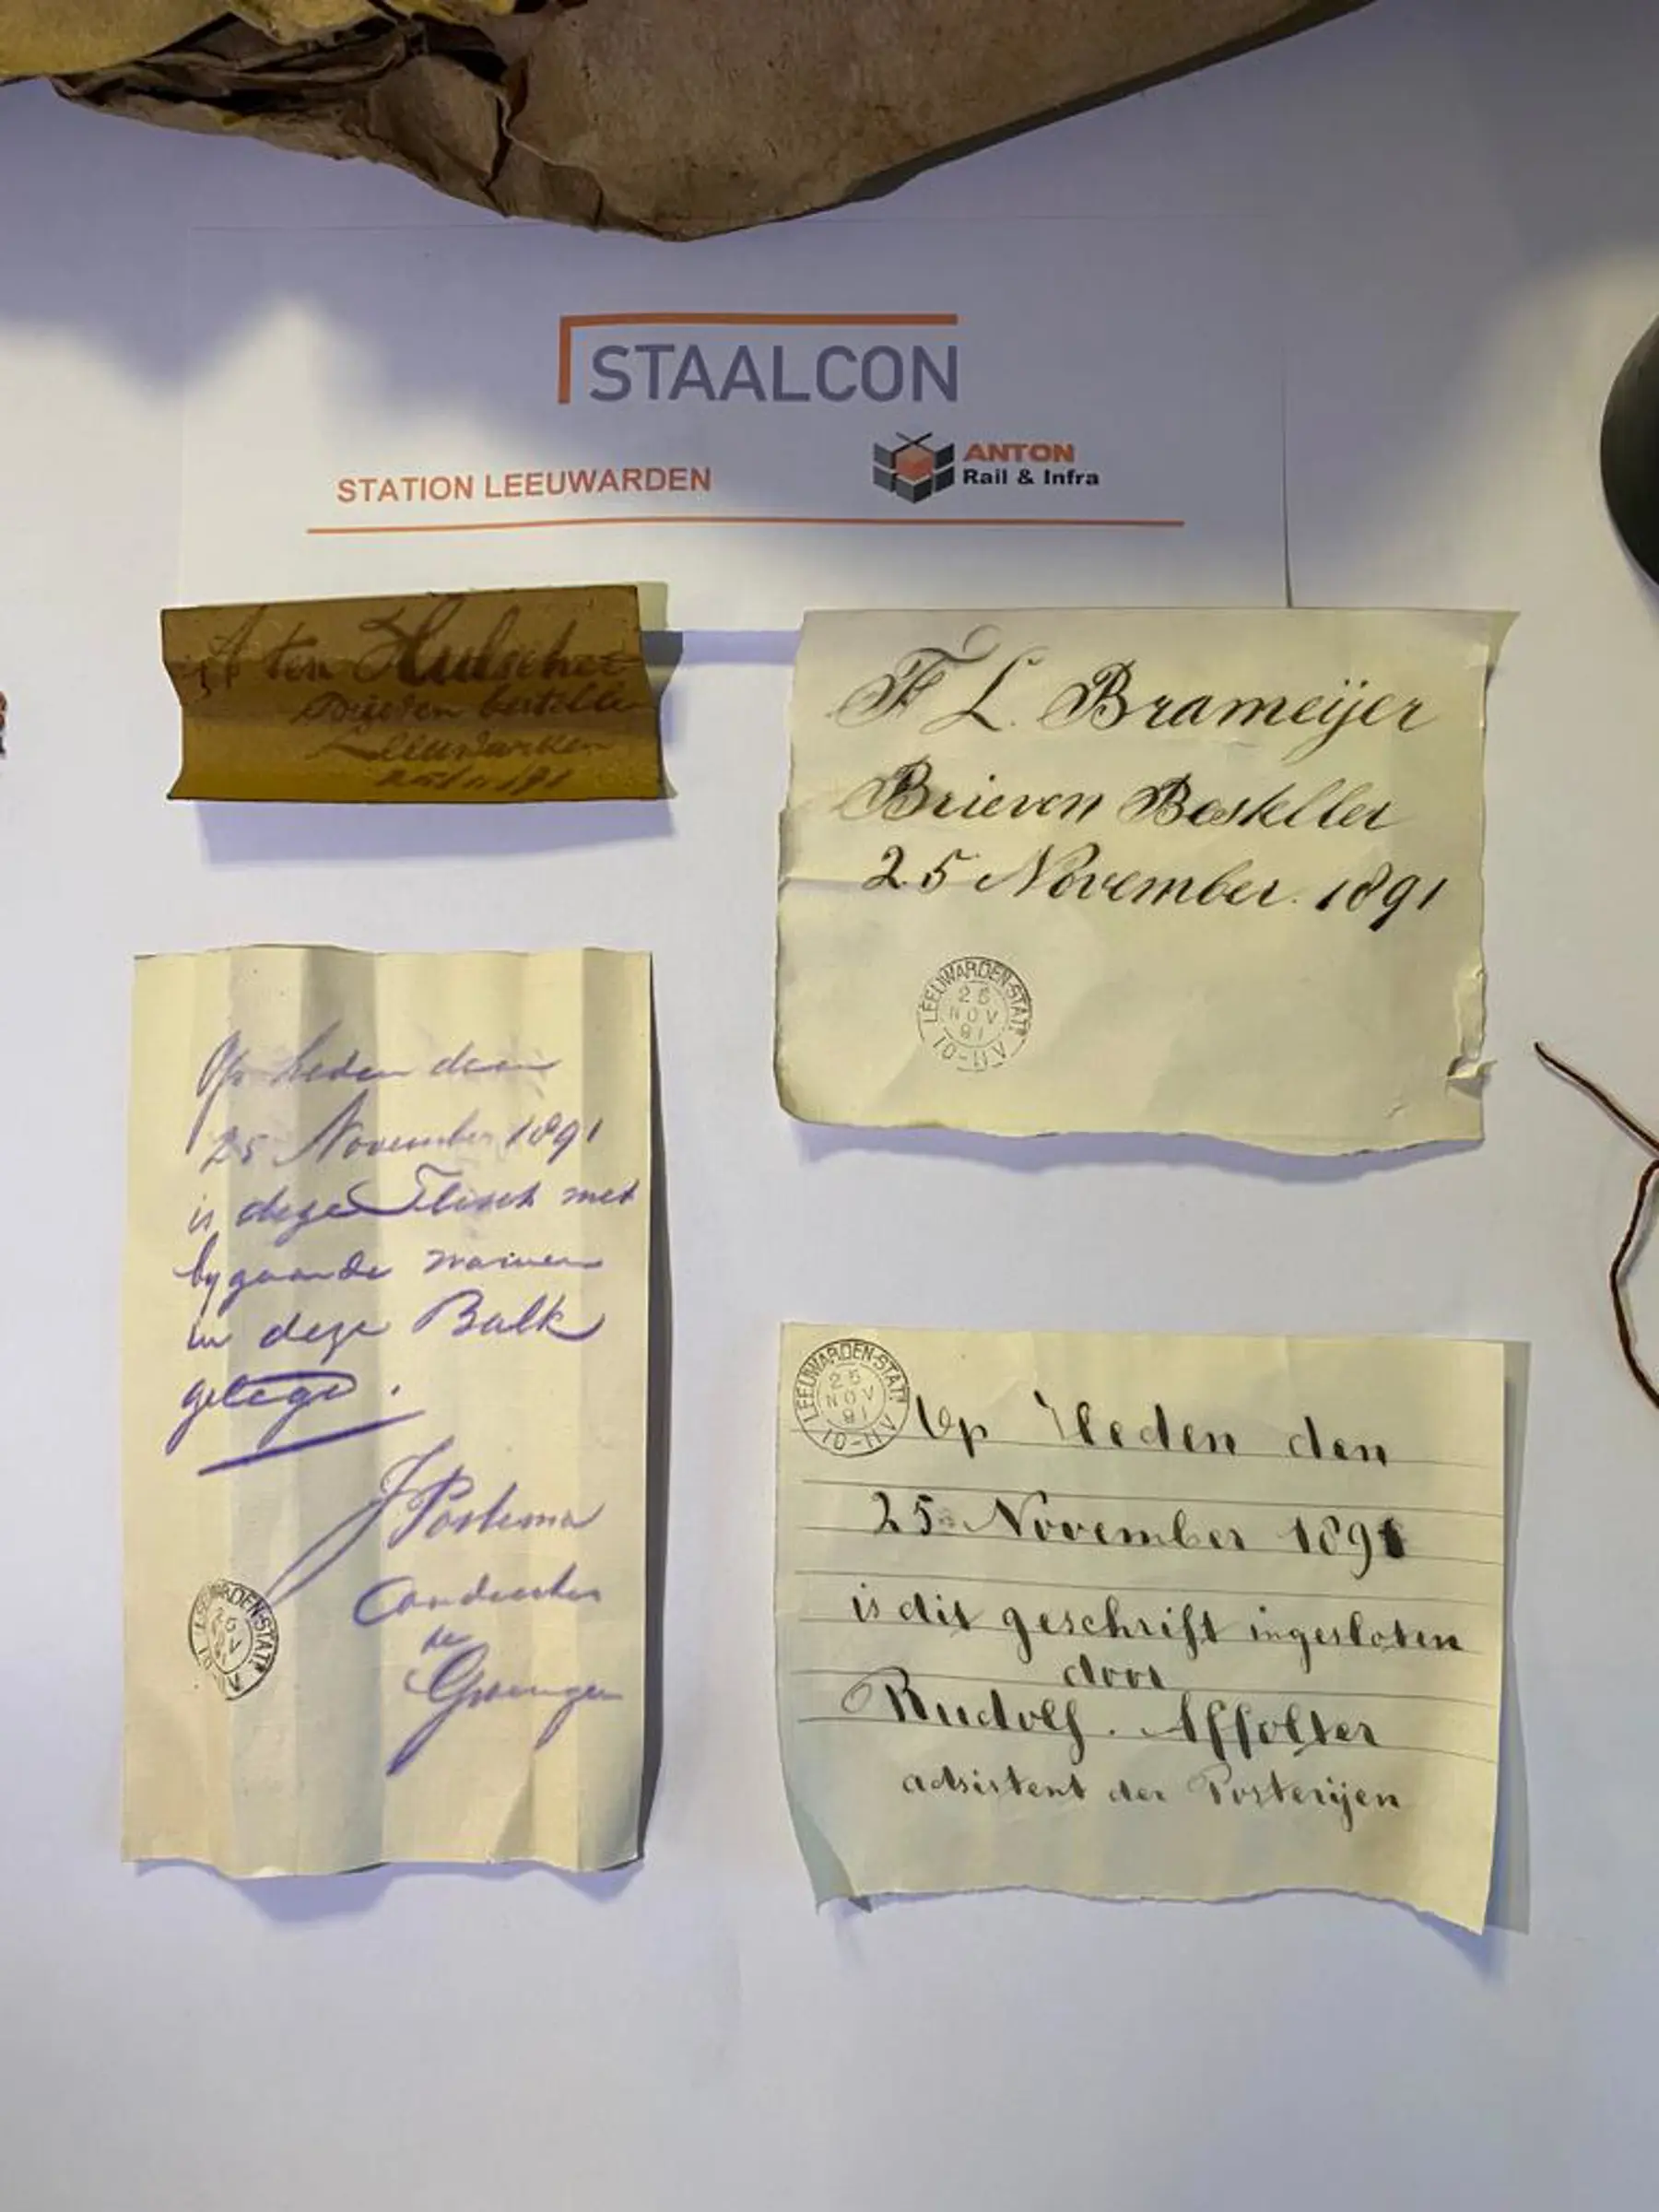 STAALCON
STATION LEEUWARDEN
ANTON
Rail & Infra
ten Hulscher
Brieven besteller
Leeuwarden
25/11/91
F L. Brameijer
Brieven Besteller
25 November. 1891
LEEUWARDEN-STATN
25
NOV
91
10-11V
Op heden den
25 November 1891
is deze Flesch met
bygaande namen
in deze Balk
gelegd.
J Postema
Conducteur
te
Groningen
LEEUWARDEN-STATN
LEEUWARDEN-STATN
25
NOV
91
10-11V
Op Heden den
25n November 1891
is dit geschrift ingesloten
door
Rudolf. Affolter
adsistent der Posterijen